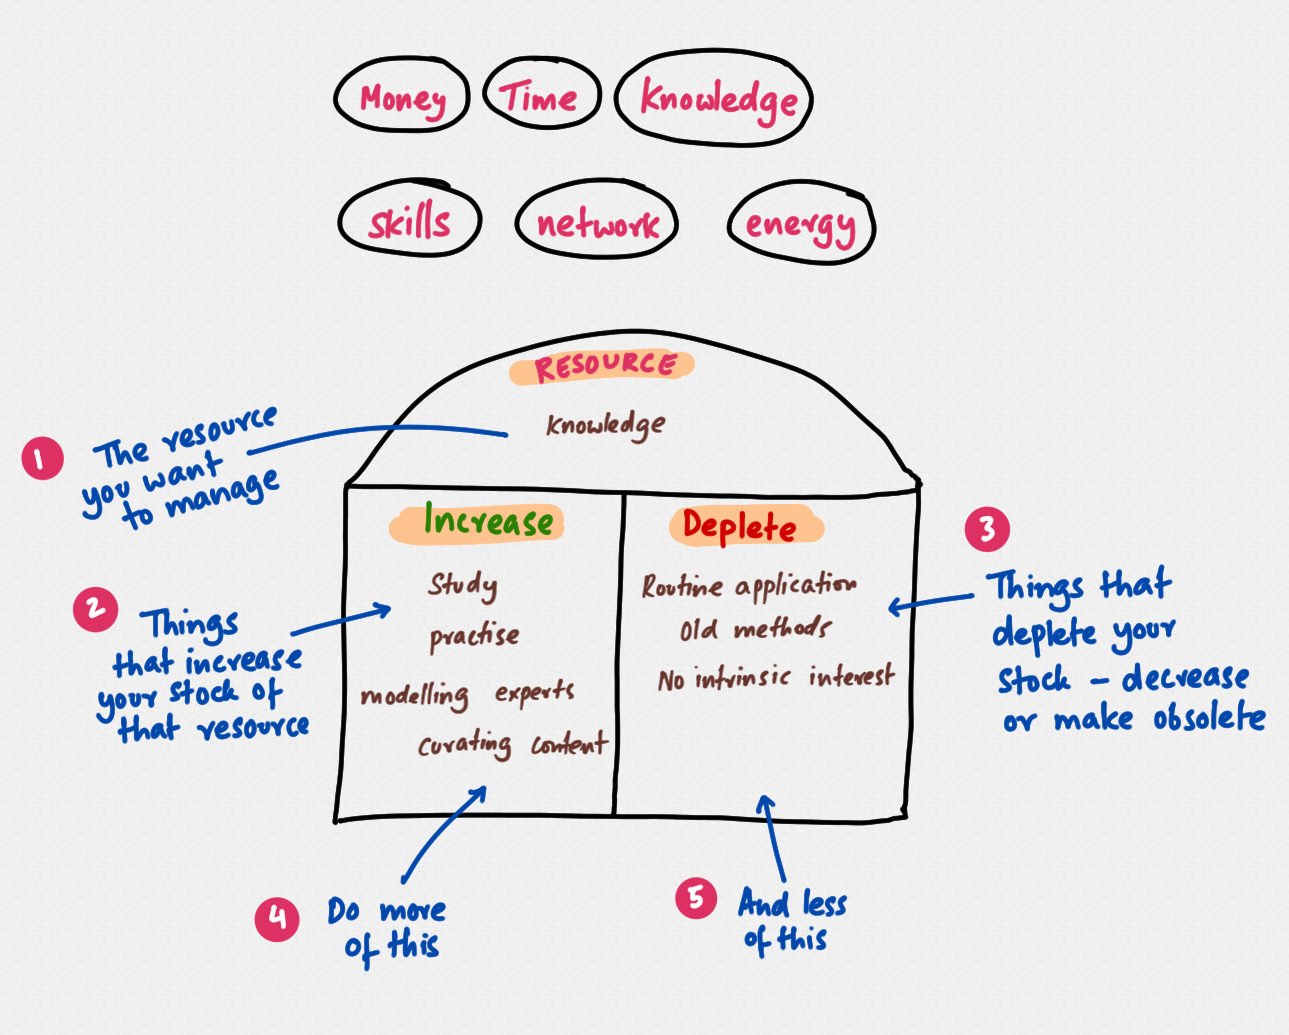 Money Time Knowledge
skills network energy
RESOURCE
Knowledge
1
The resource
you want
to manage
Increase
Study
practise
modelling experts
curating content
Deplete
Routine application
Old methods
No intrinsic interest
2
Things
that increase
your stock of
that resource
3
Things that
deplete your
stock – decrease
or make obsolete
4
Do more
of this
5
And less
of this